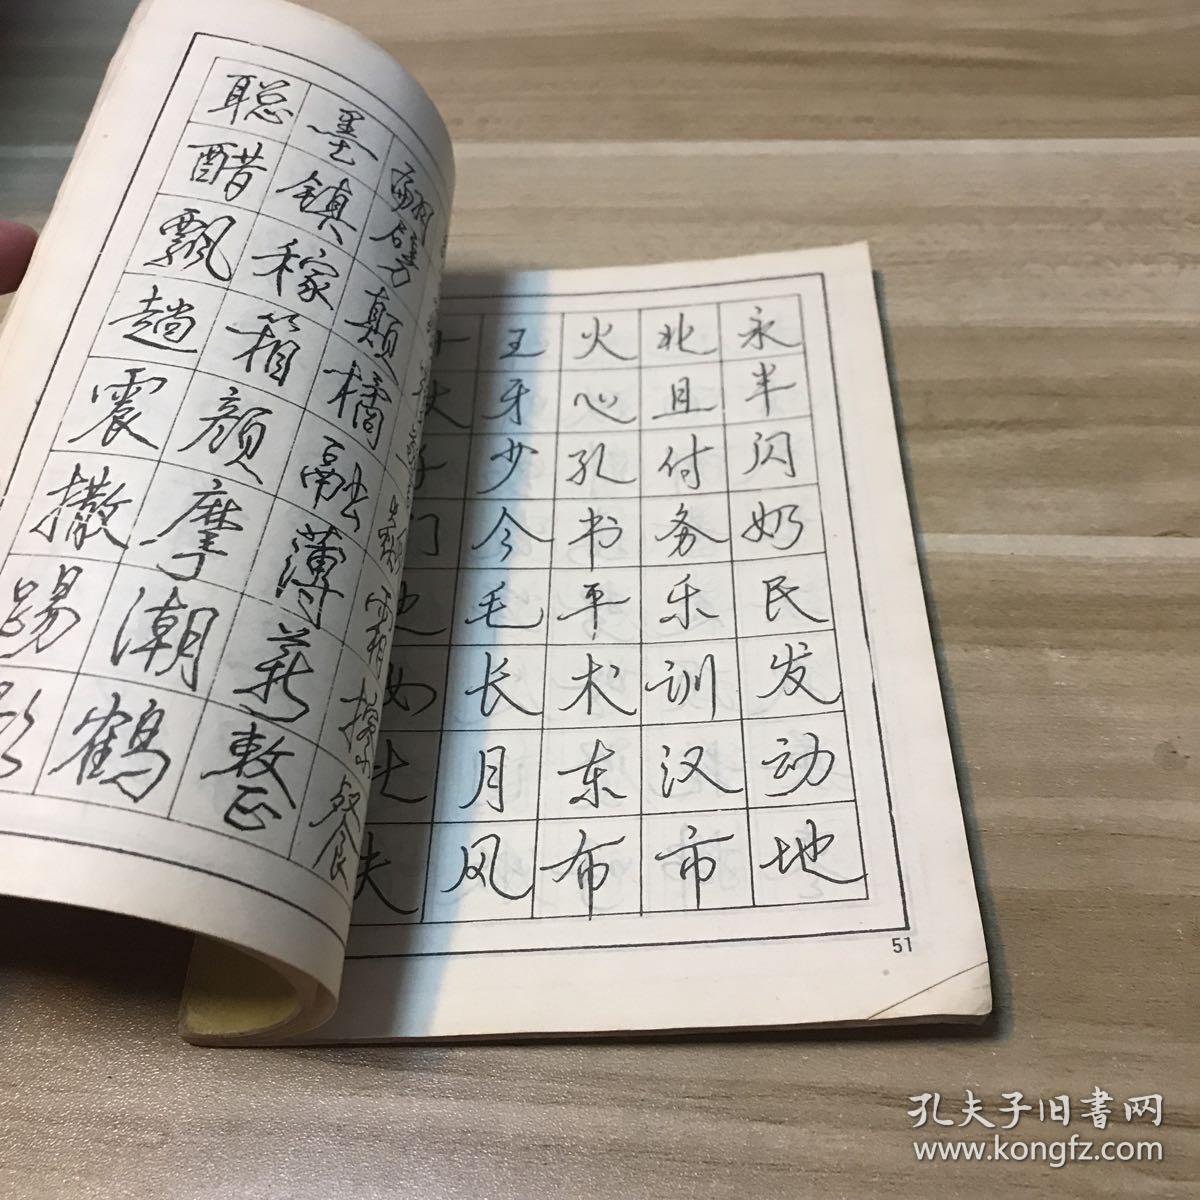 聪 墨 翩
醋 镇 劈
飘 稼 颠
趟 箱 橘
震 颜 融
撒 摩 薄
踢 潮 薪
影 鹤 整 餐
王 火 北 永
牙 心 且 半
少 孔 付 闪
门 今 书 务 奶
毛 平 乐 民
女 长 术 训 发
月 东 汉 动
夫 风 布 市 地
51
孔夫子旧书网
www.kongfz.com